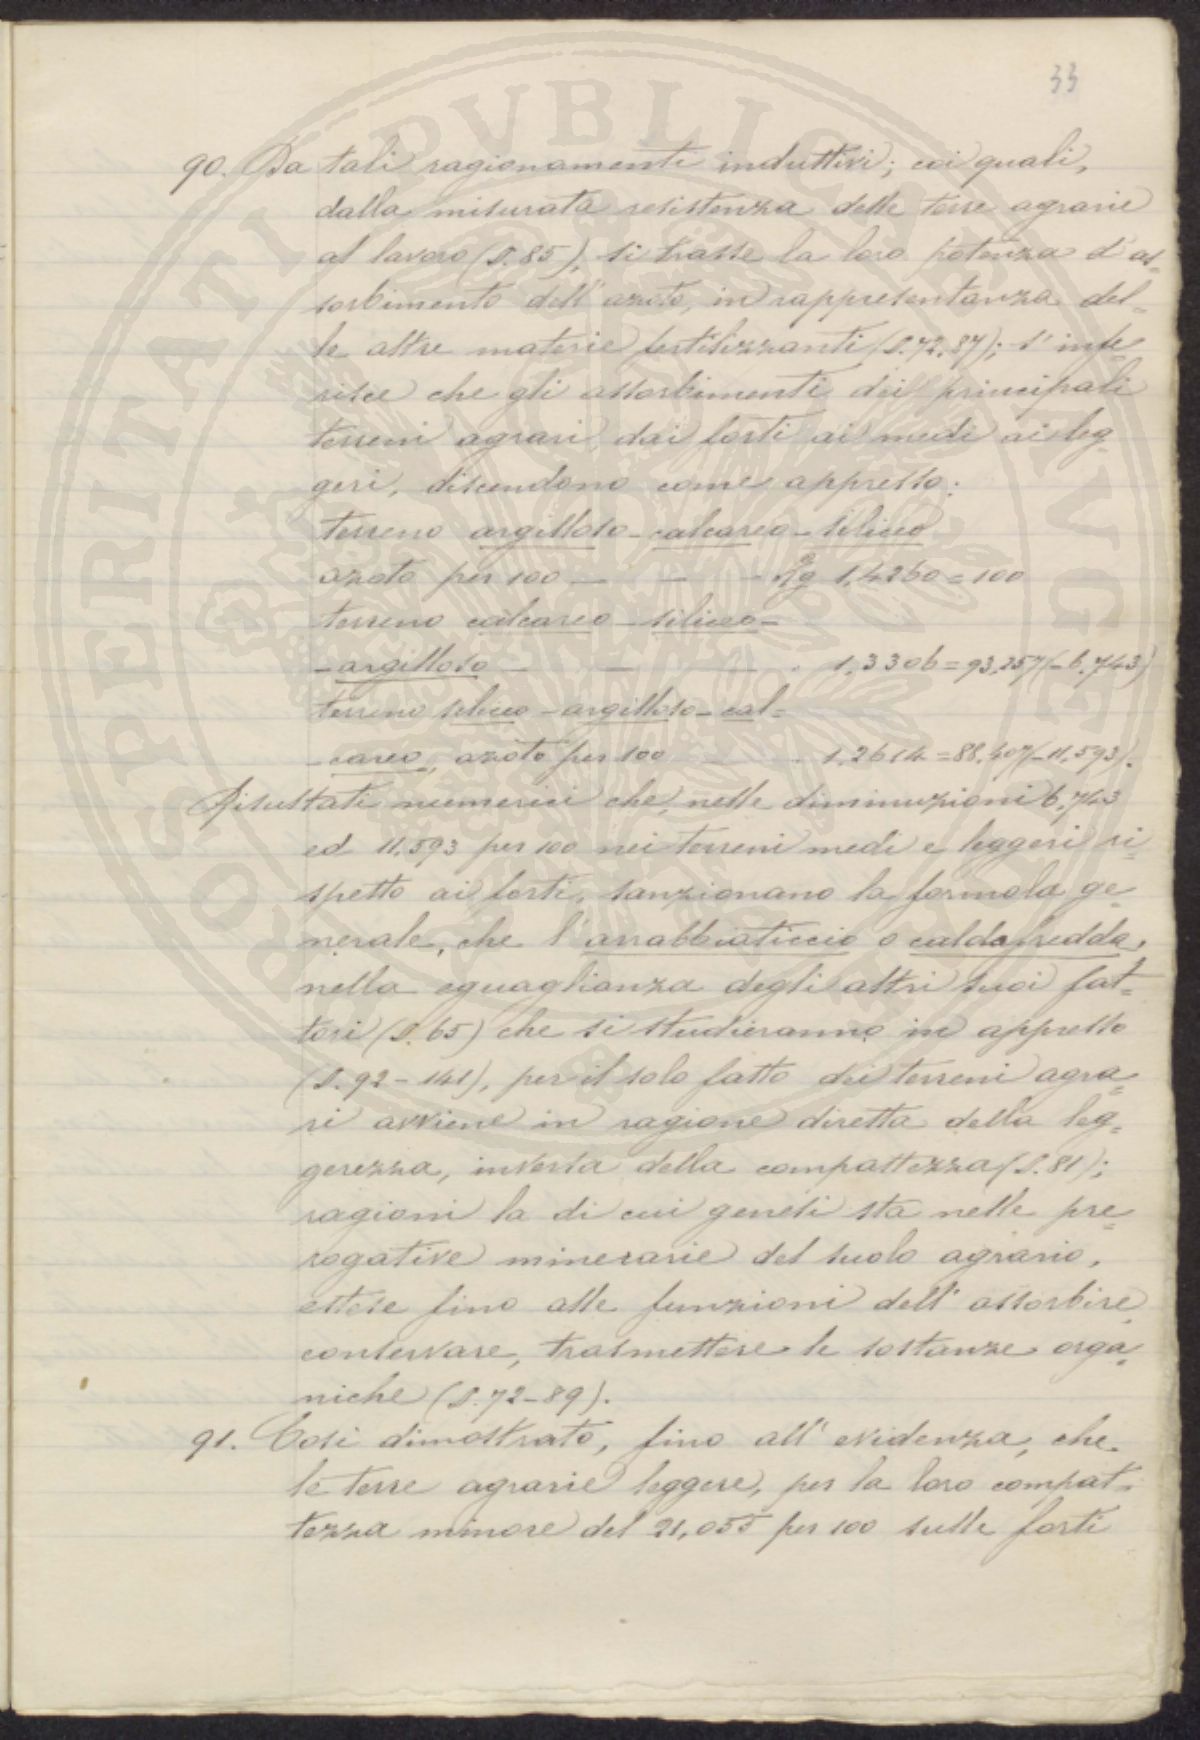 33
90. Da tali ragionamenti induttivi; coi quali,
dalla misurata resistenza delle terre agrarie
al lavoro (§. 85), si trasse la loro potenza d'as=
sorbimento dell'azoto, in rappresentanza del=
le altre materie fertilizzanti (§. 72, 87); s'infe=
risce che gli assorbimenti dei principali
terreni agrari dai forti ai medi ai leg=
geri, discendono come appresso:
terreno argilloso-calcareo-siliceo
azoto per 100 — — - Kg 1,4260 = 100
terreno calcareo-siliceo-
-argilloso - — - . 1,3306 = 93,257 (-6,743)
terreno siliceo-argilloso-cal=
-careo, azoto per 100 . 1,2614 = 88,407 (-11,593).
Risultati numerici che, nelle diminuzioni 6,743
ed 11,593 per 100 nei terreni medi e leggeri ri=
spetto ai forti, sanzionano la formola ge=
nerale, che l'arrabbiaticcio o caldafredda,
nella eguaglianza degli altri suoi fat=
tori (§. 65) che si studieranno in appresso
(§. 92-141), per il solo fatto dei terreni agra=
ri avviene in ragione diretta della leg=
gerezza, inversa della compattezza (§. 81);
ragioni la di cui genesi sta nelle pre=
rogative minerarie del suolo agrario,
estese fino alle funzioni dell'assorbire,
conservare, trasmettere le sostanze orga=
niche (§. 72-89).
91. Così dimostrato, fino all'evidenza, che
le terre agrarie leggere, per la loro compat=
tezza minore del 21,055 per 100 sulle forti
PROSPERITATI PUBLICAE AUGENDAE